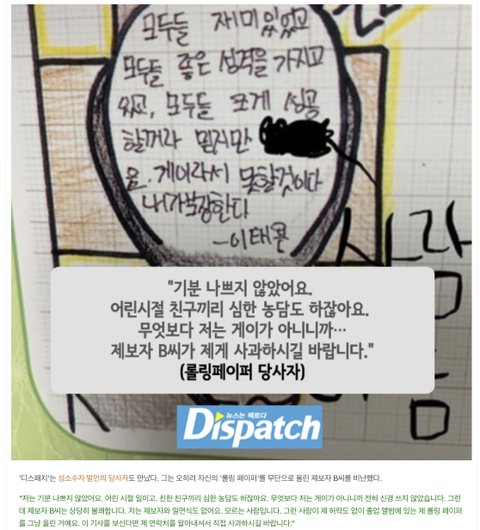 모두들 재미있었고
모두들 좋은 성격을 가지고
있고, 모두들 크게 성공
할꺼라 믿지만
은 게이라서 못할것이다
내가보장한다
"기분 나쁘지 않았어요.
어린시절 친구끼리 심한 농담도 하잖아요.
무엇보다 저는 게이가 아니니까…
제보자 B씨가 제게 사과하시길 바랍니다."
(롤링페이퍼 당사자)
뉴스는 팩트다
Dispatch
'디스패치'는 성소수자 발언의 당사자도 만났다. 그는 오히려 자신의 '롤링 페이퍼'를 무단으로 올린 제보자 B씨를 비난했다.
"저는 기분 나쁘지 않았어요. 어린 시절 일이고, 친한 친구끼리 심한 농담도 하잖아요. 무엇보다 저는 게이가 아니니까 전혀 신경 쓰지 않았습니다. 그런
데 제보자 B씨는 상당히 불쾌합니다. 저는 제보자와 일면식도 없어요. 모르는 사람입니다. 그런 사람이 제 허락도 없이 졸업 앨범에 있는 제 롤링 페이퍼
를 그냥 올린 거예요. 이 기사를 보신다면 제 연락처를 알아내서서 직접 사과하시길 바랍니다."